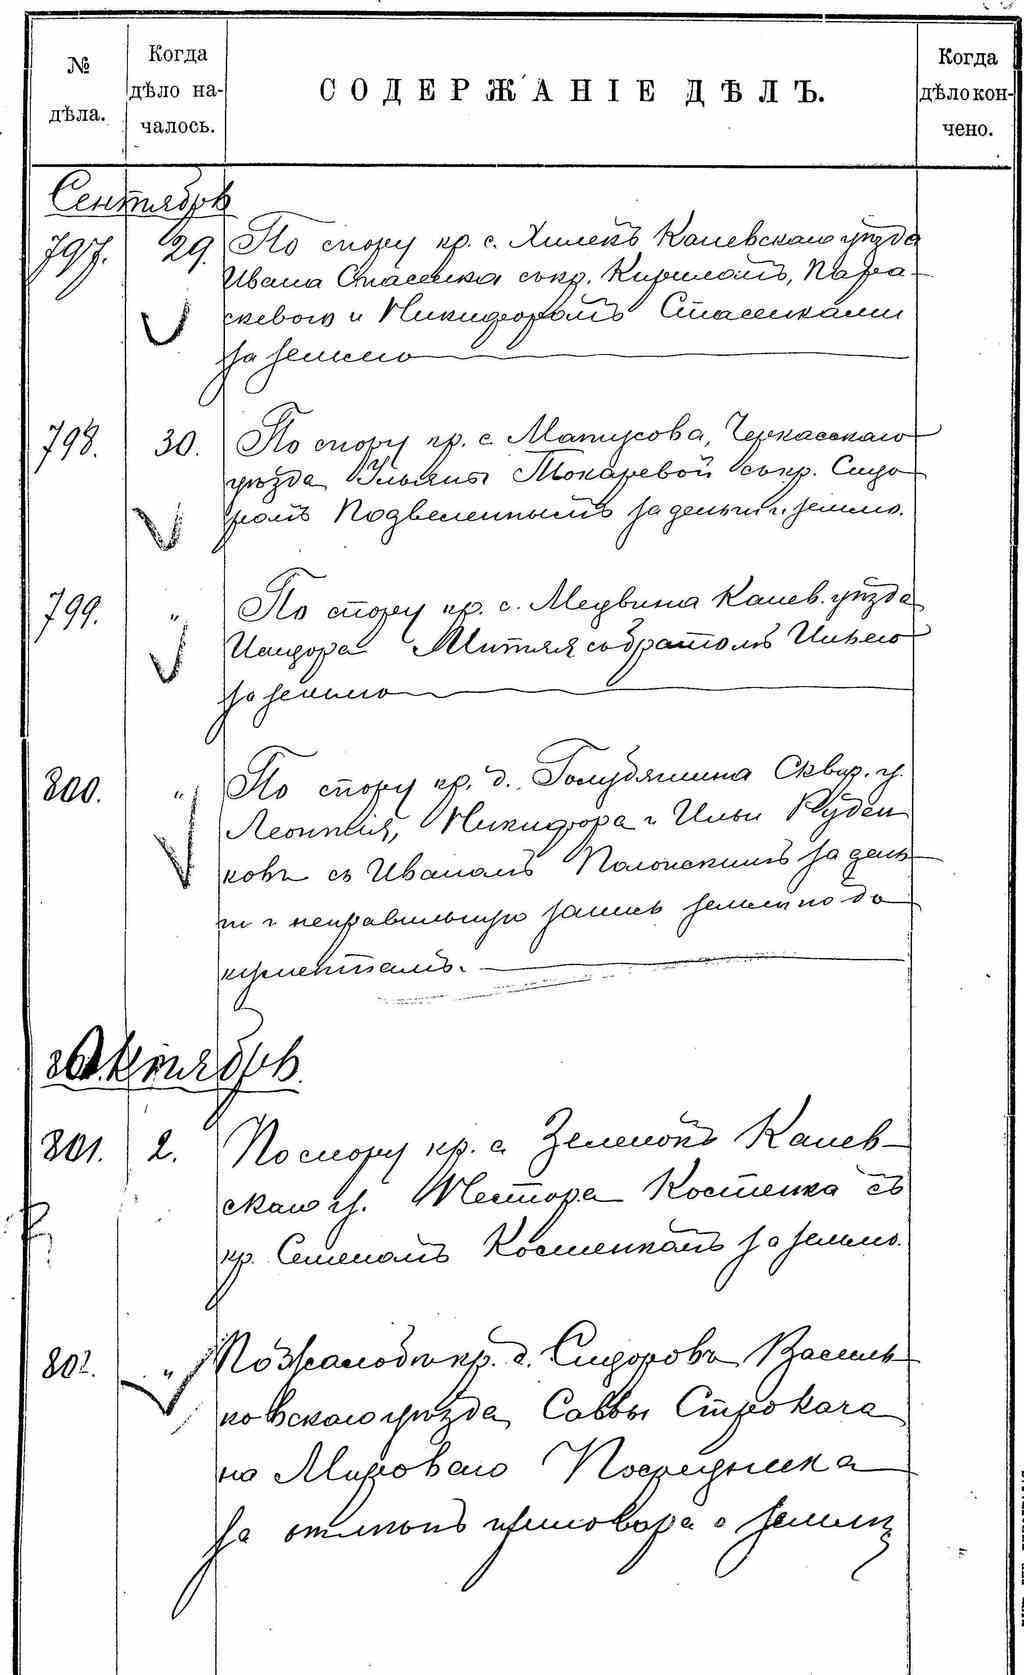 № дѣла.
Когда дѣло началось.
СОДЕРЖАНІЕ ДѢЛЪ.
Когда дѣло кончено.
Сентябрь
797. 29. По спору кр. с. Хилекъ Каневскаго уѣзда
Ивана Стасенка съ кр. Кириломъ, Пара-
скевою и Никифоромъ Стасенками
за землю
798. 30. По спору кр. с. Матусова, Черкасскаго
уѣзда Ульяны Токаревой съ кр. Сидо
ромъ Подвеленнымъ за деньги и землю.
799. " По спору кр. с. Медвина Канев. уѣзда
Исидора Митяя съ братомъ Ильею
за землю
800. " По спору кр. д. Голубятина Сквир. у.
Леонтія, Никифора и Ильи Руден
ковъ съ Иваномъ Полонскимъ за день
ги и неправильную запись земли по до
кументамъ.
Октябрь.
801. 2. По спору кр. с. Зеленокъ Канев-
скаго у. Нестора Костенка съ
кр. Семеномъ Костенкомъ за землю.
802. " По жалобѣ кр. д. Сидоровъ Василь
ковскаго уѣзда Саввы Строкача
на Мироваго Посредника
за отмѣнъ приговора о землѣ